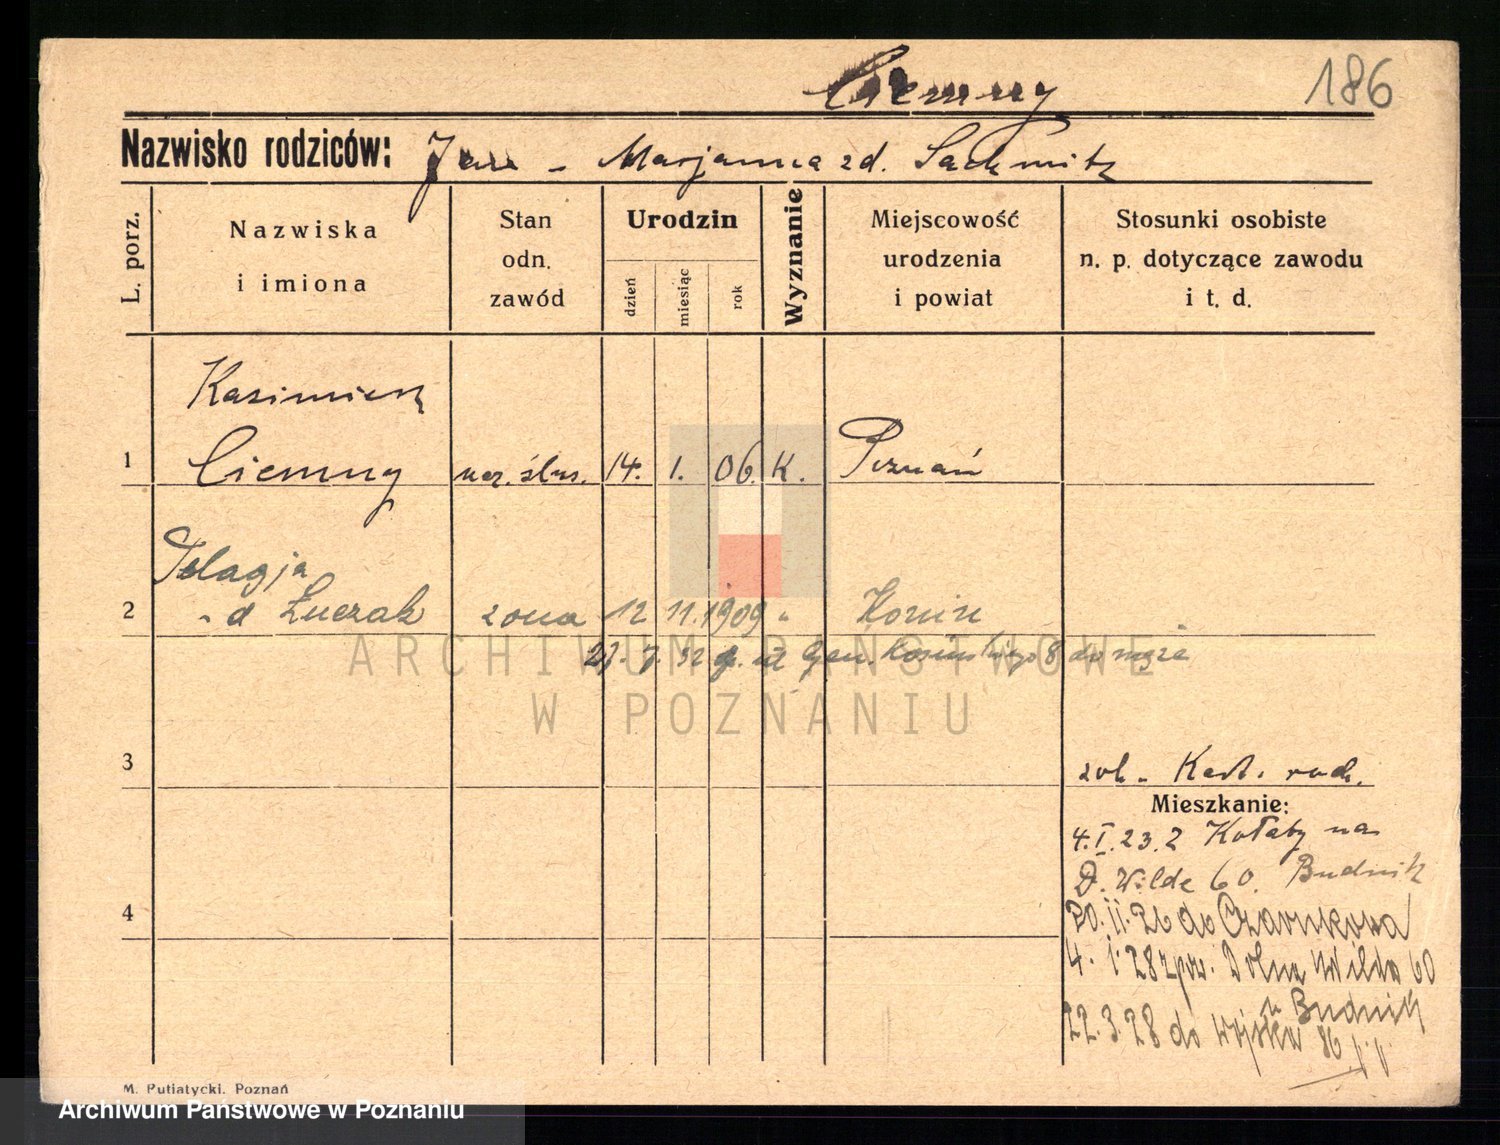 Ciemny
186
Nazwisko rodziców: Jan - Marjanna zd. Sachmitz
L. porz.
Nazwiska
i imiona
Stan
odn.
zawód
Urodzin
dzień
miesiąc
rok
Wyznanie
Miejscowość
urodzenia
i powiat
Stosunki osobiste
n. p. dotyczące zawodu
i t. d.
Kazimierz
1 Ciemny ucz. ślus. 14. 1. 06. K. Poznań
Pelagja
2 - d Łuczak żona 12 11. 1909 " Konin
ARCHIWUM PAŃSTWOWE
27. 7. 32 Gen. Kosińskiego 8 do męża
W POZNANIU
3
zob. Kart. rodz.
Mieszkanie:
4. I. 23. z Kołaty na
D. Wilde 60. Budnik
4
20. 11. 26 do Czarnkowa
4. 1. 28 zpow. Dolna Wilda 60
u Budnik
22. 3. 28 do wojska
M. Putiatycki, Poznań
Archiwum Państwowe w Poznaniu